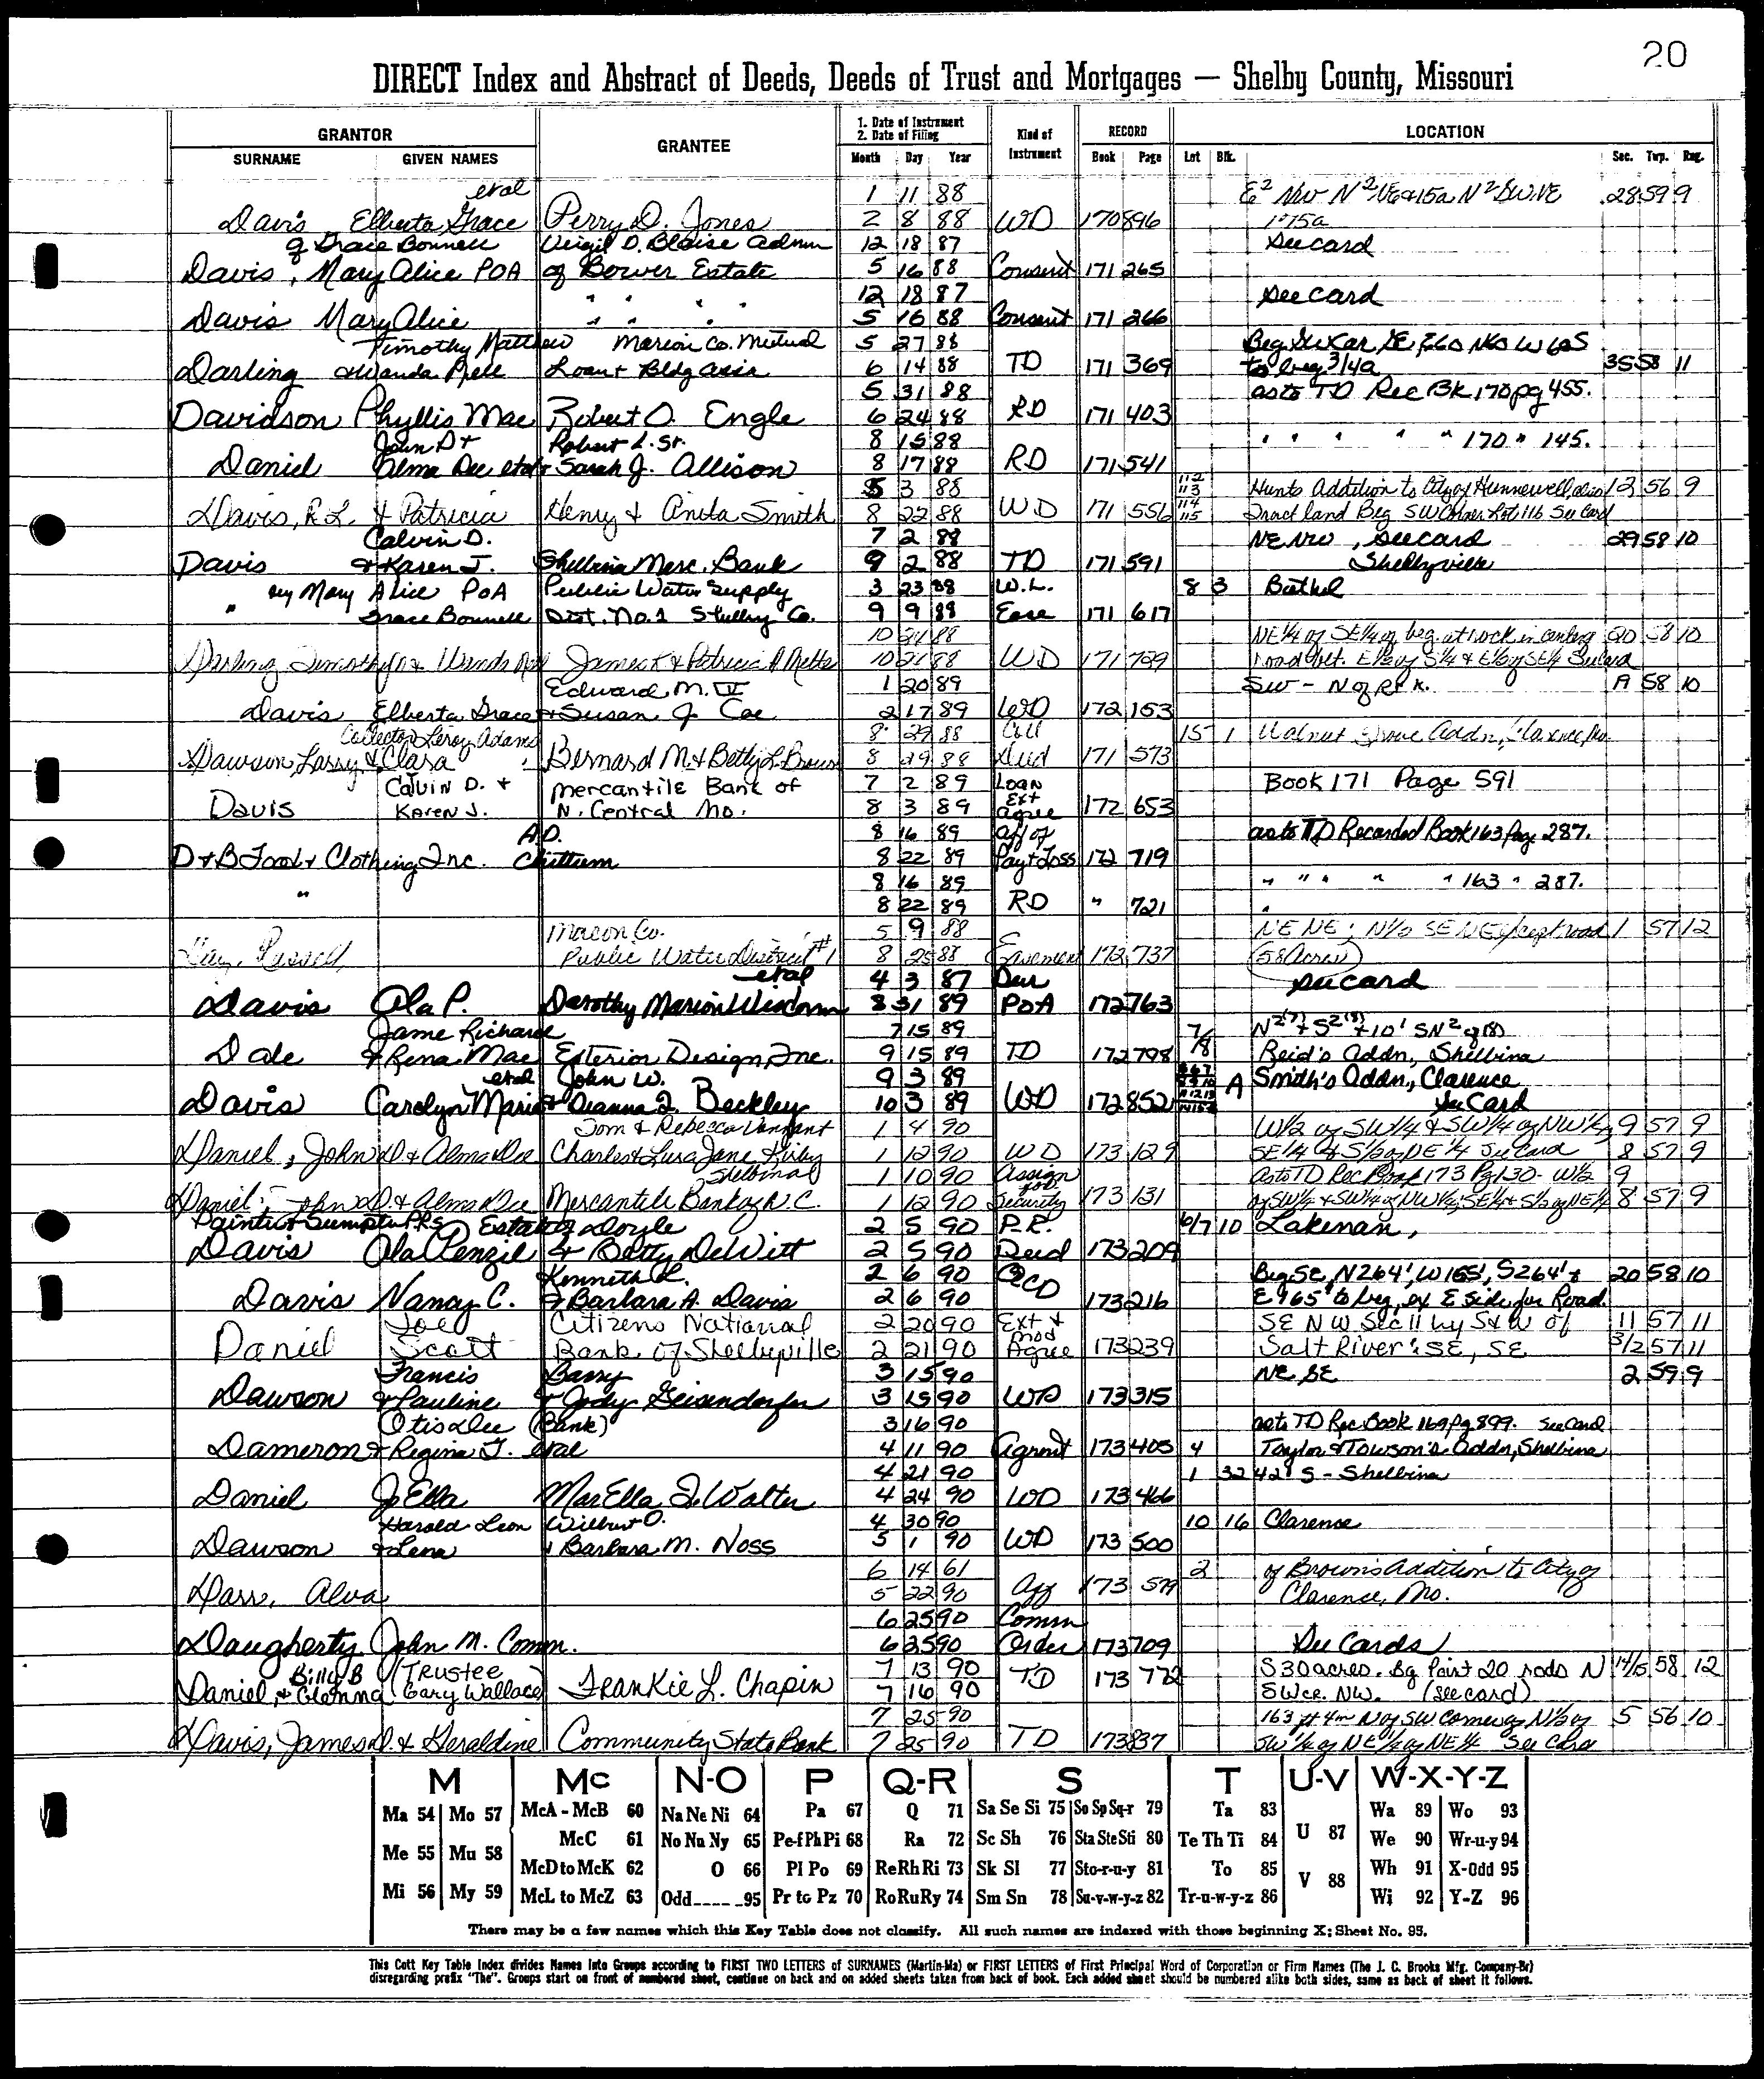 20
DIRECT Index and Abstract of Deeds, Deeds of Trust and Mortgages — Shelby County, Missouri
GRANTOR GRANTEE 1. Date of Instrument 2. Date of Filing Kind of Instrument RECORD LOCATION
SURNAME GIVEN NAMES Month Day Year Book Page Lot Blk. Sec. Twp. Rng.
etal 1 11 88 28 59 9
Davis Elberta Grace Perry D. Jones 2 8 88 WD 170 896 175a
of Grace Bonnell Virgil D. Blaise Admn 12 18 87 See card
Davis, Mary Alice POA of Bower Estate 5 16 88 Consent 171 265
" " " " 12 18 87 See card
Davis Mary Alice " " " 5 16 88 Consent 171 266
Timothy Matthew Marion Co. Mutual 5 27 88
Darling & Wanda Nell Loan & Bldg Assn 6 14 88 TD 171 369 to beg 3/4a 35 58 11
5 31 88 as to TD Rec BK 170 pg 455.
Davidson Phyllis Mae Robert O. Engle 6 24 88 RD 171 403
John D + Robert L. Sr. 8 15 88 " " " " " 170 " 145.
Daniel Alma Dee etal + Sarah J. Allison 8 17 88 RD 171 541
5 3 88 112 113 Hunts Addition to City of Hunnewell, also 12 56 9
Davis, R.L. & Patricia Henry & Anita Smith 8 22 88 WD 171 556 114 115 Tract land Beg SW Corner Lot 116 See Card
Calvin D. 7 2 88 NE NW, See card 29 58 10
Davis & Karen J. Shelbina Merc. Bank 9 2 88 TD 171 591 Shelbyville
by Mary Alice POA Public Water Supply 3 23 88 W.L. 8 3 Bethel
" Grace Bonnell Dist. No. 1 Shelby Co. 9 9 88 Ease 171 617
10 21 88 NE 1/4 of SE 1/4 of beg. at rock in center of 20 58 10
Darling Timothy M & Wanda Nell James K & Patricia A Mette 10 21 88 WD 171 759
Edward M. II 1 20 89 SW - N of R+K. 19 58 10
Davis Elberta Grace & Susan J. Coe 2 17 89 WD 172 153
Collector Leroy Adams 8 29 88 Coll 15 1 Walnut Grove Addn, Clarence, Mo.
Dawson, Larry & Clara Bernard M. & Betty L. Brown 8 29 88 Deed 171 573
Calvin D. + Mercantile Bank of 7 2 89 Loan Book 171 Page 591
Davis Karen J. N. Central Mo. 8 3 89 Ext agree 172 653
A.D. 8 16 89 Aff of as to TD Recorded Book 163 Page 287.
D + B Food + Clothing, Inc. Chittum 8 22 89 Pay + Loss 172 719
8 16 89 " " " " " 163 " 287.
" 8 22 89 RD " 721
Macon Co. 5 9 88 NE NE; N 1/2 SE NE except road 1 57 12
Day, Russell Public Water District #1 8 25 88 Easement 172 737 (58 Acres)
etal 4 3 87 Dur See card
Davis Ola P. Dorothy Marion Wisdom 8 31 89 POA 172 763
Jame Richard 7 15 89 7/8 N2(7) + S2(8) + 10' SN2 of (8)
Dale & Rena Mae Exterior Design, Inc. 9 15 89 TD 172 798 Reid's Addn., Shelbina
etal John W. 9 3 89 A Smith's Addn., Clarence
Davis Carolyn Marie & Deanna L. Beckley 10 3 89 WD 172 852 See Card
Tom & Rebecca Vannant 1 4 90 W 1/2 of SW 1/4 & SW 1/4 of NW 1/4 9 57 9
Daniel, John D & Alma Dee Charles & Lura Jane Kirby 1 12 90 WD 173 129 SE 1/4 & S 1/2 of NE 1/4 See Card 8 57 9
Shelbina 1 10 90 Assign for as to TD Rec Book 173 Pg 130 - W 1/2 9
Daniel, John D. & Alma Dee Mercantile Bank of N.C. 1 12 90 Security 173 131 of SW 1/4 & SW 1/4 of NW 1/4; SE 1/4 & S 1/2 of NE 1/4 8 57 9
Painter & Sumpter PRs Estate of Doyle 2 5 90 P.R. 6/7 10 Lakenan,
Davis Ola Penzil & Betty DeWitt 2 5 90 Deed 173 209
Kenneth L. 2 6 90 QCD Beg SE, N 264', W 165', S 264' & 20 58 10
Davis Nancy C. & Barbara A. Davis 2 6 90 173 216 E 165' to beg, ex E side for Road.
Joe Citizens National 2 20 90 Ext + mod SE NW Sec 11 lying S & W of 11 57 11
Daniel Scott Bank of Shelbyville 2 21 90 Agree 173 239 Salt River; SE, SE 3/2 57 11
Francis Barry 3 15 90 NE SE 2 59 9
Dawson & Pauline & Jody Geisendorfer 3 15 90 WD 173 315
Otis Dee (Bank) 3 16 90 as to TD Rec Book 169 pg 899. See Card
Dameron & Regina J. etal 4 11 90 Agrmt 173 405 4 Taylor & Towson's Addn, Shelbina
4 21 90 1 32 42' S - Shelbina
Daniel J. Ella MarElla J. Walter 4 24 90 WD 173 466
Harold Leon Wilbur O. 4 30 90 10 16 Clarence
Dawson & Lena & Barbara M. Noss 5 1 90 WD 173 500
6 14 61 2 of Brown's Addition to City of
Darr, Alva 5 22 90 Aff 173 579 Clarence, Mo.
6 25 90 Comm
Daugherty John M. Comm. 6 25 90 Order 173 709 See Cards
Billy B (Trustee 7 13 90 TD 173 772 S 30 acres. Bg Point 20 rods N 14/5 58 12
Daniel, & Glenna Gary Wallace) Frankie L. Chapin 7 16 90 SW cr. NW. (see card)
7 25 90 163 ft 4in N of SW Corner of N 1/2 of 5 56 10
Davis, James D. & Geraldine Community State Bank 7 25 90 TD 173 837 SW 1/4 of NE 1/4 of NE 1/4 See Card
M Mc N-O P Q-R S T U-V W-X-Y-Z
Ma 54 Mo 57 McA - McB 60 Na Ne Ni 64 Pa 67 Q 71 Sa Se Si 75 So Sp Sq-r 79 Ta 83 U 87 Wa 89 Wo 93
Me 55 Mu 58 McC 61 No Nu Ny 65 Pe-f Ph Pi 68 Ra 72 Sc Sh 76 Sta Ste Sti 80 Te Th Ti 84 We 90 Wr-u-y 94
McD to McK 62 O 66 Pl Po 69 Re Rh Ri 73 Sk Sl 77 Sto-r-u-y 81 To 85 V 88 Wh 91 X-Odd 95
Mi 56 My 59 McL to McZ 63 Odd_____95 Pr to Pz 70 Ro Ru Ry 74 Sm Sn 78 Su-v-w-y-z 82 Tr-u-w-y-z 86 Wi 92 Y-Z 96
There may be a few names which this Key Table does not classify. All such names are indexed with those beginning X; Sheet No. 95.
This Cott Key Table Index divides Names into Groups according to FIRST TWO LETTERS of SURNAMES (Martin-Ma) or FIRST LETTERS of First Principal Word of Corporation or Firm Names (The J. C. Brooks Mfg. Company-Br)
disregarding prefix "The". Groups start on front of numbered sheet, continue on back and on added sheets taken from back of book. Each added sheet should be numbered alike both sides, same as back of sheet it follows.